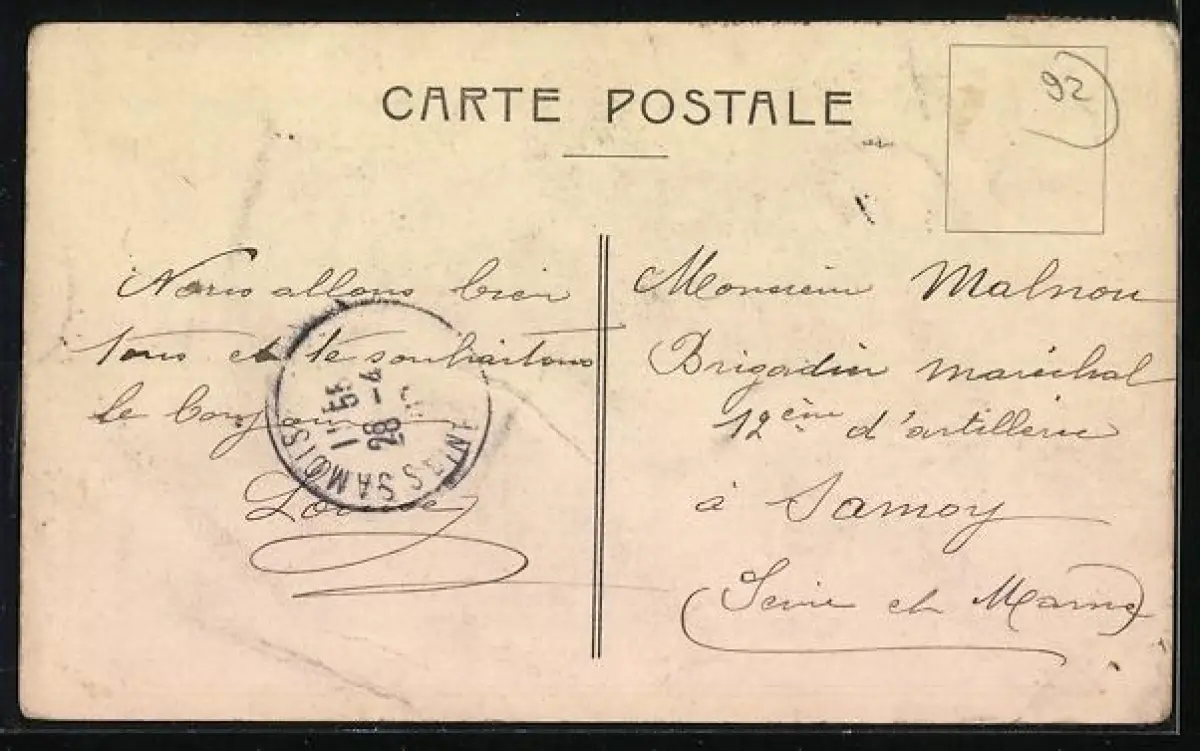 CARTE POSTALE
92
Nous allons bien
tous et te souhaitons
le bonjour
Louise
Monsieur Malnou
Brigadier maréchal
12ème d'artillerie
à Samoy
(Seine et Marne)
SAMOIS
28 -4